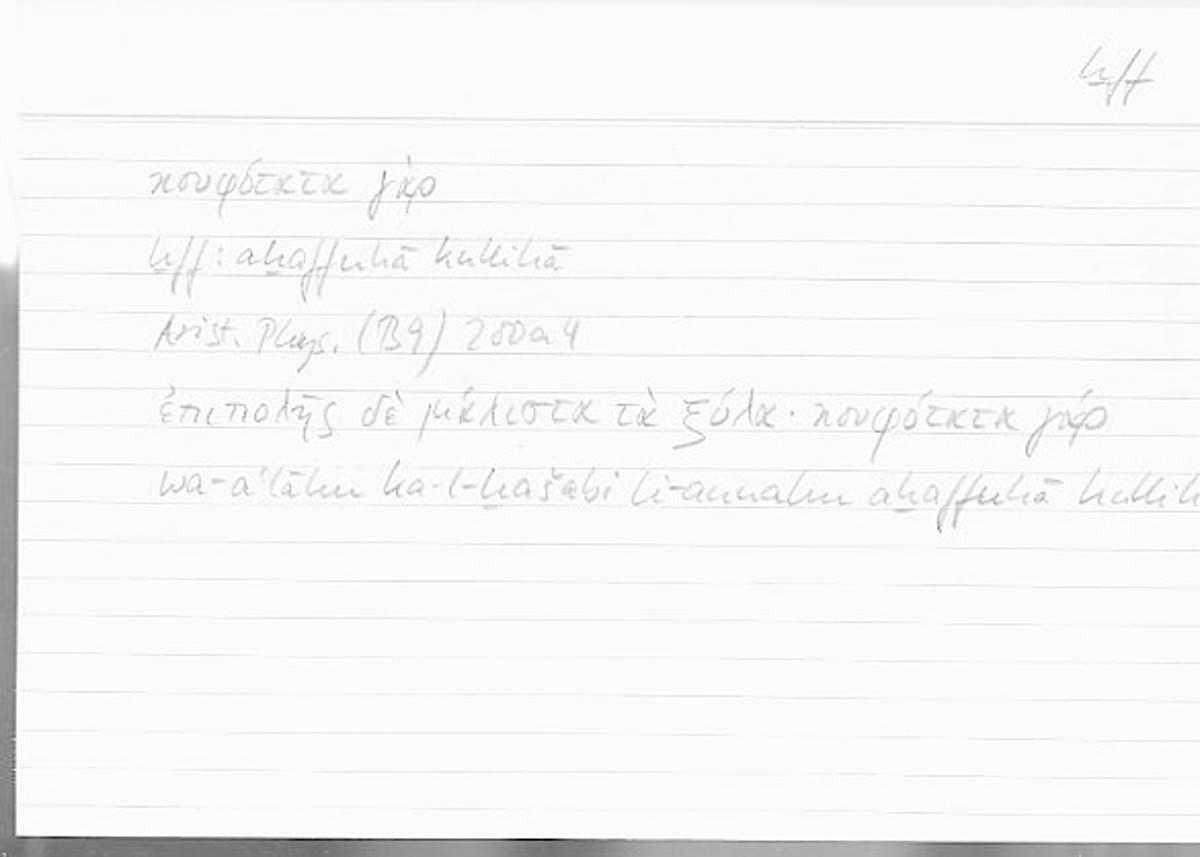 ḫff
κουφότατα γάρ
ḫff : aḫaffuhā kullihā
Arist. Phys. (B9) 200a4
ἐπιπολῆς δὲ μάλιστα τὰ ξύλα· κουφότατα γάρ
wa-aʿlāhu ka-l-ḫašabi li-annahu aḫaffuhā